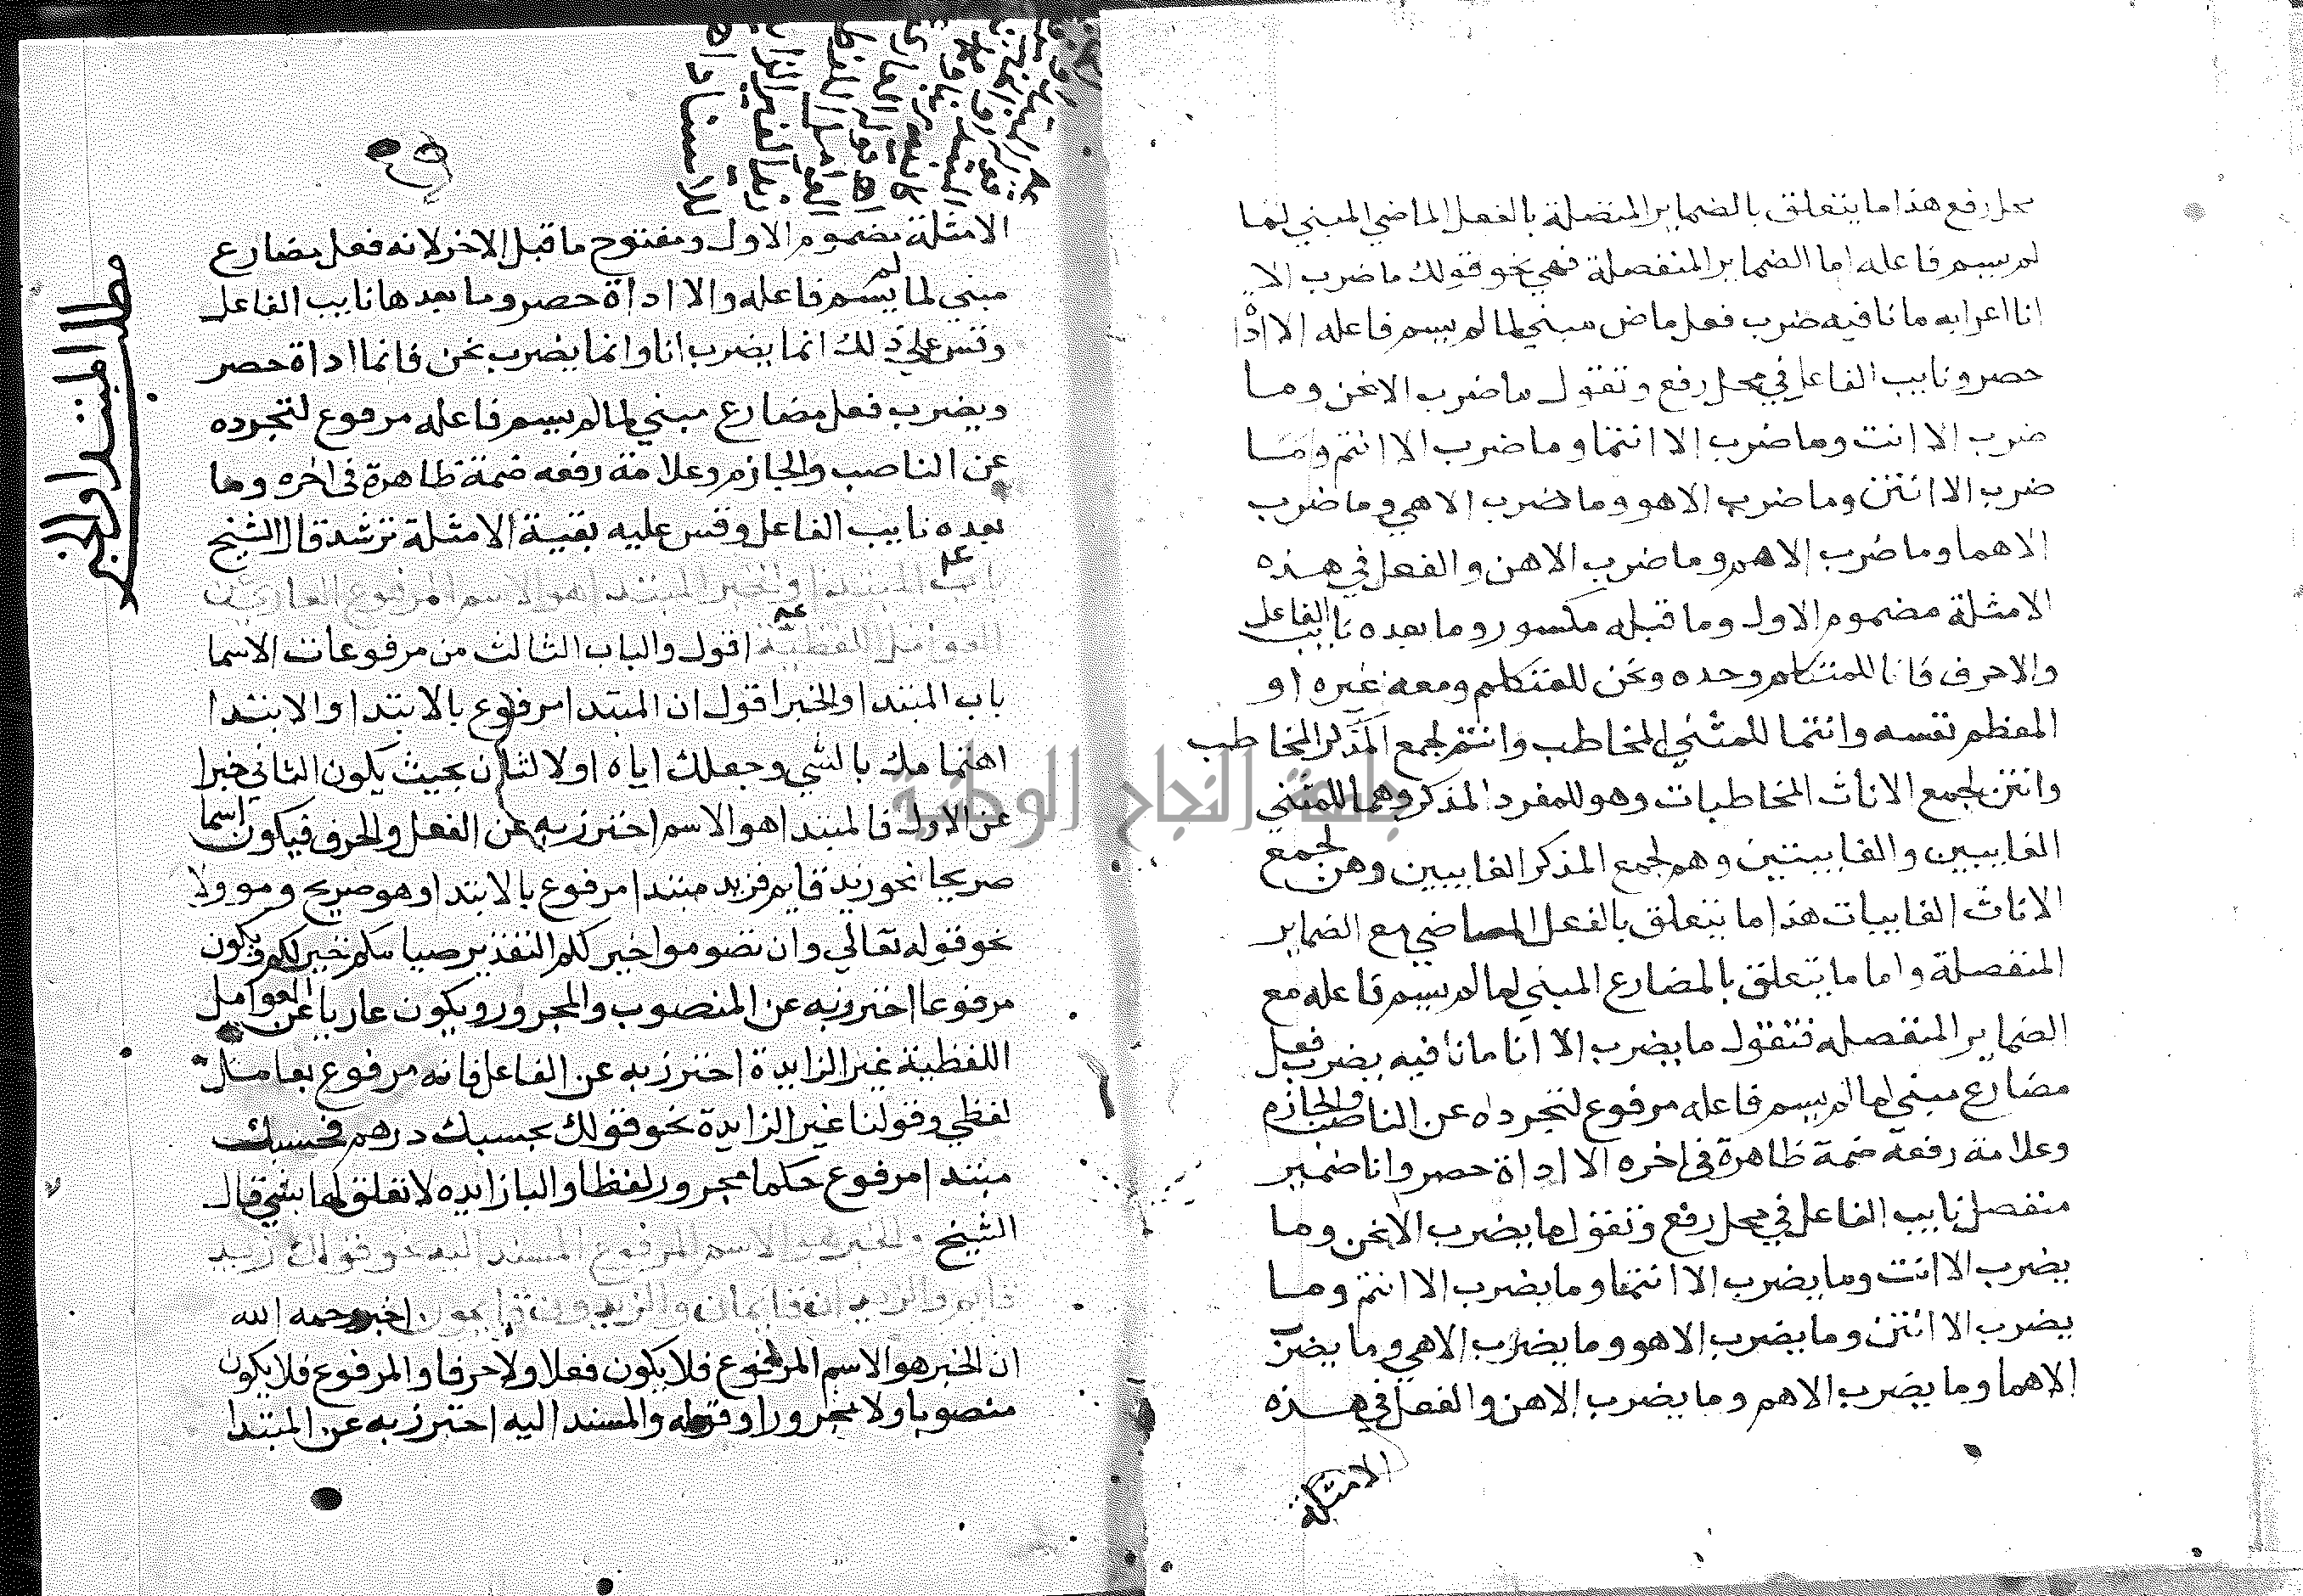 محل رفع هذا ما يتعلق بالضماير المتصلة بالفعل الماضي المبني لما
لم يسم فاعله اما الضماير المنفصلة فهي نحو قولك ما ضرب الا
انا اعرابه ما نافيه ضرب فعل ماض مبني لما لم يسم فاعله الا اداة
حصر ونايب الفاعل في محل رفع وتقول ما ضرب الا نحن وما
ضرب الا انت وما ضرب الا انتما وما ضرب الا انتم وما
ضرب الا انتن وما ضرب الا هو وما ضرب الا هي وما ضرب
الا هما وما ضرب الا هم وما ضرب الا هن والفعل في هذه
الامثلة مضموم الاول وما قبله مكسور وما بعده نايب الفاعل
والاحرف فانا للمتكلم وحده ونحن للمتكلم ومعه غيره او
المعظم نفسه وانتما للمثني المخاطب وانتم لجمع المذكر المخاطب
وانتن لجمع الاناث المخاطبات وهو للمفرد المذكر وهما للمثني
الغايبين والغايبتين وهم لجمع المذكر الغايبين وهن لجمع
الاناث الغايبات هذا ما يتعلق بالفعل الماضي مع الضماير
المنفصلة واما ما يتعلق بالمضارع المبني لما لم يسم فاعله مع
الضماير المنفصله فتقول ما يضرب الا انا ما نافيه يضرب فعل
مضارع مبني لما لم يسم فاعله مرفوع لتجرده عن الناصب والجازم
وعلامة رفعه ضمة ظاهرة في اخره الا اداة حصر وانا ضمير
منفصل نايب الفاعل في محل رفع وتقول ما يضرب الا نحن وما
يضرب الا انت وما يضرب الا انتما وما يضرب الا انتم وما
يضرب الا انتن وما يضرب الا هو وما يضرب الا هي وما يضرب
الا هما وما يضرب الا هم وما يضرب الا هن والفعل في هذه
الامثلة
الامثلة مضموم الاول ومفتوح ما قبل الاخر لانه فعل مضارع
مبني لما لم يسم فاعله والا اداة حصر وما بعدها نايب الفاعل
وقس علي ذلك انما يضرب انا وانما يضرب نحن فانما اداة حصر
ويضرب فعل مضارع مبني لما لم يسم فاعله مرفوع لتجرده
عن الناصب والجازم وعلامة رفعه ضمة ظاهرة في اخره وما
بعده نايب الفاعل وقس عليه بقية الامثلة ترشد قال الشيخ
باب المبتدا والخبر المبتدا هو الاسم المرفوع العاري عن
العوامل اللفظية اقول والباب الثالث من مرفوعات الاسما
باب المبتدا والخبر اقول ان المبتدا مرفوع بالابتدا والابتدا
اهتمامك بالشي وجعلك اياه اولا لثان بحيث يكون الثاني خبرا
عن الاول فالمبتدا هو الاسم احترز به عن الفعل والحرف فيكون اسما
صريحا نحو زيد قايم فزيد مبتدا مرفوع بالابتدا وهو صريح ومو ولا
نحو قوله تعالي وان تصوموا خير لكم التقدير صيامكم خير لكم ويكون
مرفوعا احترز به عن المنصوب والمجرور ويكون عاريا عن العوامل
اللفظية غير الزايدة احترز به عن الفاعل فانه مرفوع بعامل
لفظي وقولنا غير الزايدة نحو قولك بحسبك درهم فحسبك
مبتدا مرفوع حكما مجرور لفظا والبا زايده لا تعلق لها بشي قال
الشيخ والخبر هو الاسم المرفوع المسند اليه نحو قولك زيد
قايم والزيدان قايمان والزيدون قايمون اخبر رحمه الله
ان الخبر هو الاسم المرفوع فلا يكون فعلا ولا حرفا والمرفوع فلا يكون
منصوبا ولا مجرورا وقوله والمسند اليه احترز به عن المبتدا
مطلب المبتدا والخبر
جامعة النجاح الوطنية